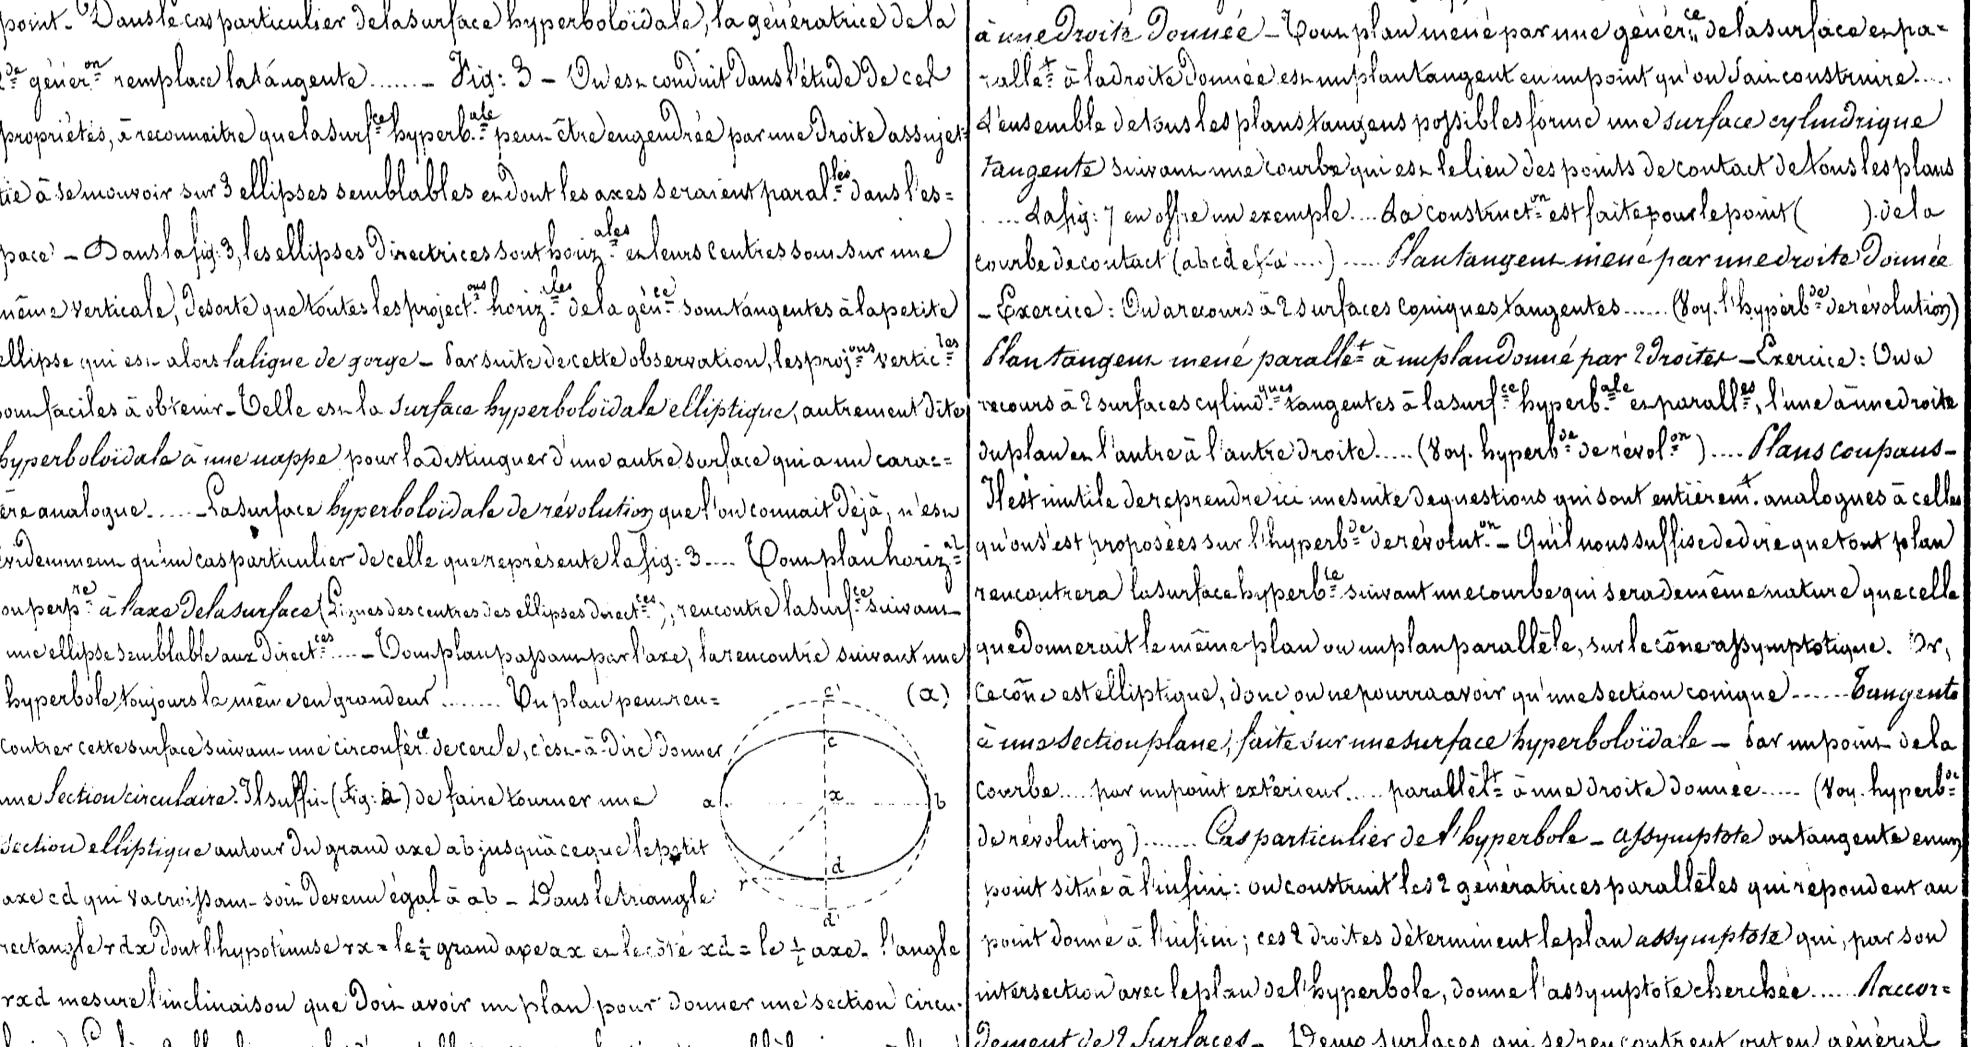 point. Dans le cas particulier de la surface hyperboloïdale, la génératrice de la
2de génér.on remplace la tangente ....... – Fig: 3 – On est conduit dans l'étude de ces
propriétés, à reconnaitre que la surf.ce hyperb.ale peut être engendrée par une droite assujet=
tie à se mouvoir sur 3 ellipses semblables et dont les axes seraient paral.les dans l'es=
pace – Dans la fig: 3, les ellipses directrices sont horiz.ales et leurs centres sont sur une
même verticale, de sorte que toutes les project.ons horiz.les de la gén.ce sont tangentes à la petite
ellipse qui est alors la ligne de gorge – Par suite de cette observation, les proj.ons vertic.les
sont faciles à obtenir – Telle est la surface hyperboloïdale elliptique, autrement dite
hyperboloïdale à une nappe pour la distinguer d'une autre surface qui a un carac=
ère analogue ..... – La surface hyperboloïdale de révolution que l'on connait déjà, n'est
évidemment qu'un cas particulier de celle que représente la fig: 3 .... Tout plan horiz.al
ou perp.re à l'axe de la surface (Lignes des centres des ellipses direct.ces), rencontre la surf.ce suivant
une ellipse semblable aux direct.ces .... – Tout plan passant par l'axe, la rencontre suivant une
hyperbole toujours la même en grandeur ....... Un plan peut ren=
contrer cette surface suivant une circonfér.ce de cercle, c'est-à-dire donner
une Section circulaire. Il suffit (fig: a) de faire tourner une
section elliptique autour du grand axe ab jusqu'à ce que le petit
axe cd qui va croissant soit devenu égal à ab – Dans le triangle
rectangle rdx dont l'hypoténuse rx = le ½ grand axe ax et le côté xd = le ½ axe. l'angle
rxd mesure l'inclinaison que doit avoir un plan pour donner une section circu-
(a)
c'
c
a
x
b
r
d
d'
à une droite donnée – Tout plan mené par une génér.ce de la surface et pa=
rallel.t à la droite donnée est un plan tangent en un point qu'on sait construire .....
L'ensemble de tous les plans tangens possibles forme une surface cylindrique
tangente suivant une courbe qui est le lieu des points de contact de tous les plans
.... La fig: 7 en offre un exemple .... La construct.on est faite pour le point ( ) de la
courbe de contact (abcdefa ....) ..... Plan tangent mené par une droite donnée
– Exercice: On a recours à 2 surfaces coniques tangentes ...... (Voy. l'hyperb.de de révolution)
Plan tangent mené parallel.t à un plan donné par 2 droites – Exercice: On a
recours à 2 surfaces cylind.ques tangentes à la surf.ce hyperb.ale et parall.es, l'une à une droite
du plan et l'autre à l'autre droite ..... (Voy. hyperb.de de révol.on) .... Plans coupans –
Il est inutile de reprendre ici une suite de questions qui sont entièrem.t analogues à celles
qu'on s'est proposées sur l'hyperb.de de révolut.on – Qu'il nous suffise de dire que tout plan
rencontrera la surface hyperb.le suivant une courbe qui sera de même nature que celle
que donnerait le même plan ou un plan parallèle, sur le cône assymptotique. Or,
ce cône est elliptique, donc on ne pourra avoir qu'une section conique ...... Tangente
à une section plane, faite sur une surface hyperboloïdale – Par un point de la
courbe .... par un point extérieur .... parallèl.t à une droite donnée ..... (Voy. hyperb.de
de révolution) ....... Cas particulier de l'hyperbole – assymptote ou tangente en un
point situé à l'infini: on construit les 2 génératrices parallèles qui répondent au
point donné à l'infini; ces 2 droites déterminent le plan assymptote qui, par son
intersection avec le plan de l'hyperbole, donne l'assymptote cherchée ..... Raccor=
dement de 2 Surfaces – Deux surfaces qui se rencontrent ont en général